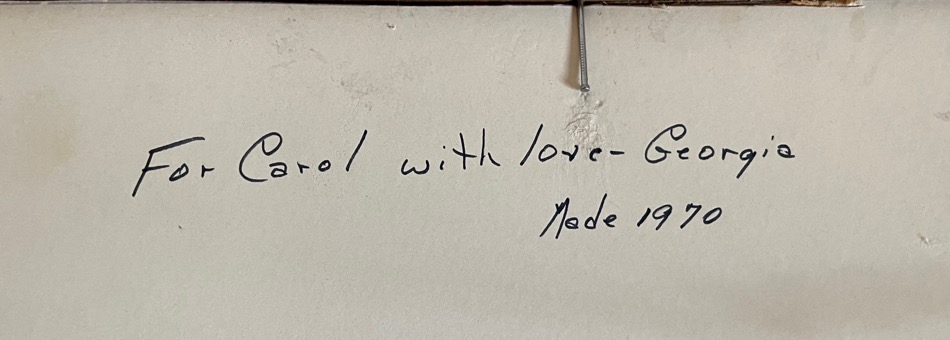 For Carol with love- Georgia
Made 1970